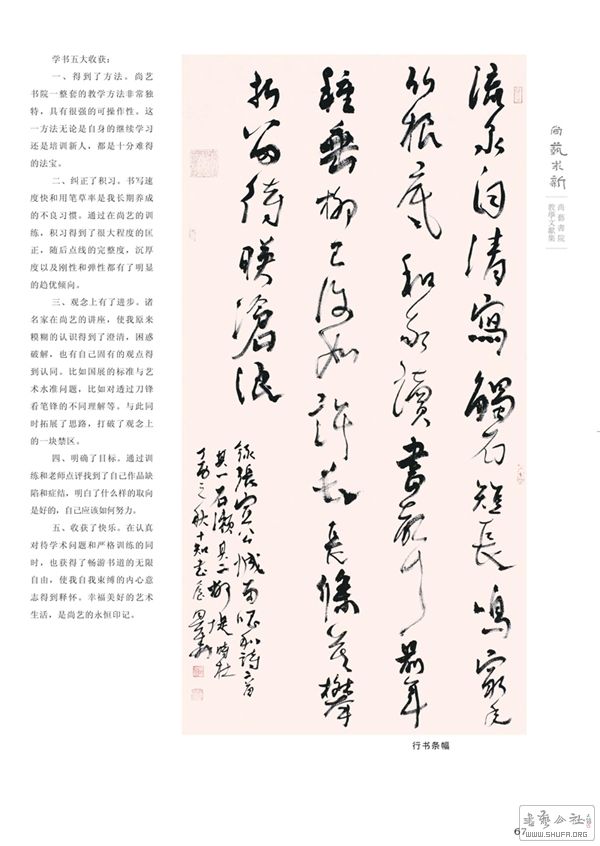 学书五大收获：
一、得到了方法。尚艺
书院一整套的教学方法非常独
特，具有很强的可操作性。这
一方法无论是自身的继续学习
还是培训新人，都是十分难得
的法宝。
二、纠正了积习。书写速
度快和用笔草率是我长期养成
的不良习惯。通过在尚艺的训
练，积习得到了很大程度的匡
正，随后点线的完整度，沉厚
度以及刚性和弹性都有了明显
的趋优倾向。
三、观念上有了进步。诸
名家在尚艺的讲座，使我原来
模糊的认识得到了澄清，困惑
破解，也有自己固有的观点得
到认同。比如国展的标准与艺
术水准问题，比如对透过刀锋
看笔锋的不同理解等。与此同
时拓展了思路，打破了观念上
的一块禁区。
四、明确了目标。通过训
练和老师点评找到了自己作品缺
陷和症结，明白了什么样的取向
是好的，自己应该如何努力。
五、收获了快乐。在认真
对待学术问题和严格训练的同
时，也获得了畅游书道的无限
自由，使我自我束缚的内心意
志得到释怀。幸福美好的艺术
生活，是尚艺的永恒印记。
流泉自清寫觸石短長鳴窮年
竹根底和永讀書聲前年
種垂柳已復如許長長條莫攀
折留待映滄浪
錄張宣公城南唱和詩二首
其一石瀨其二柳堤
丁酉之秋十知書屋
行书条幅
尚藝求新
尚藝書院
教學文獻集
67
书艺公社
WWW.SHUFA.ORG